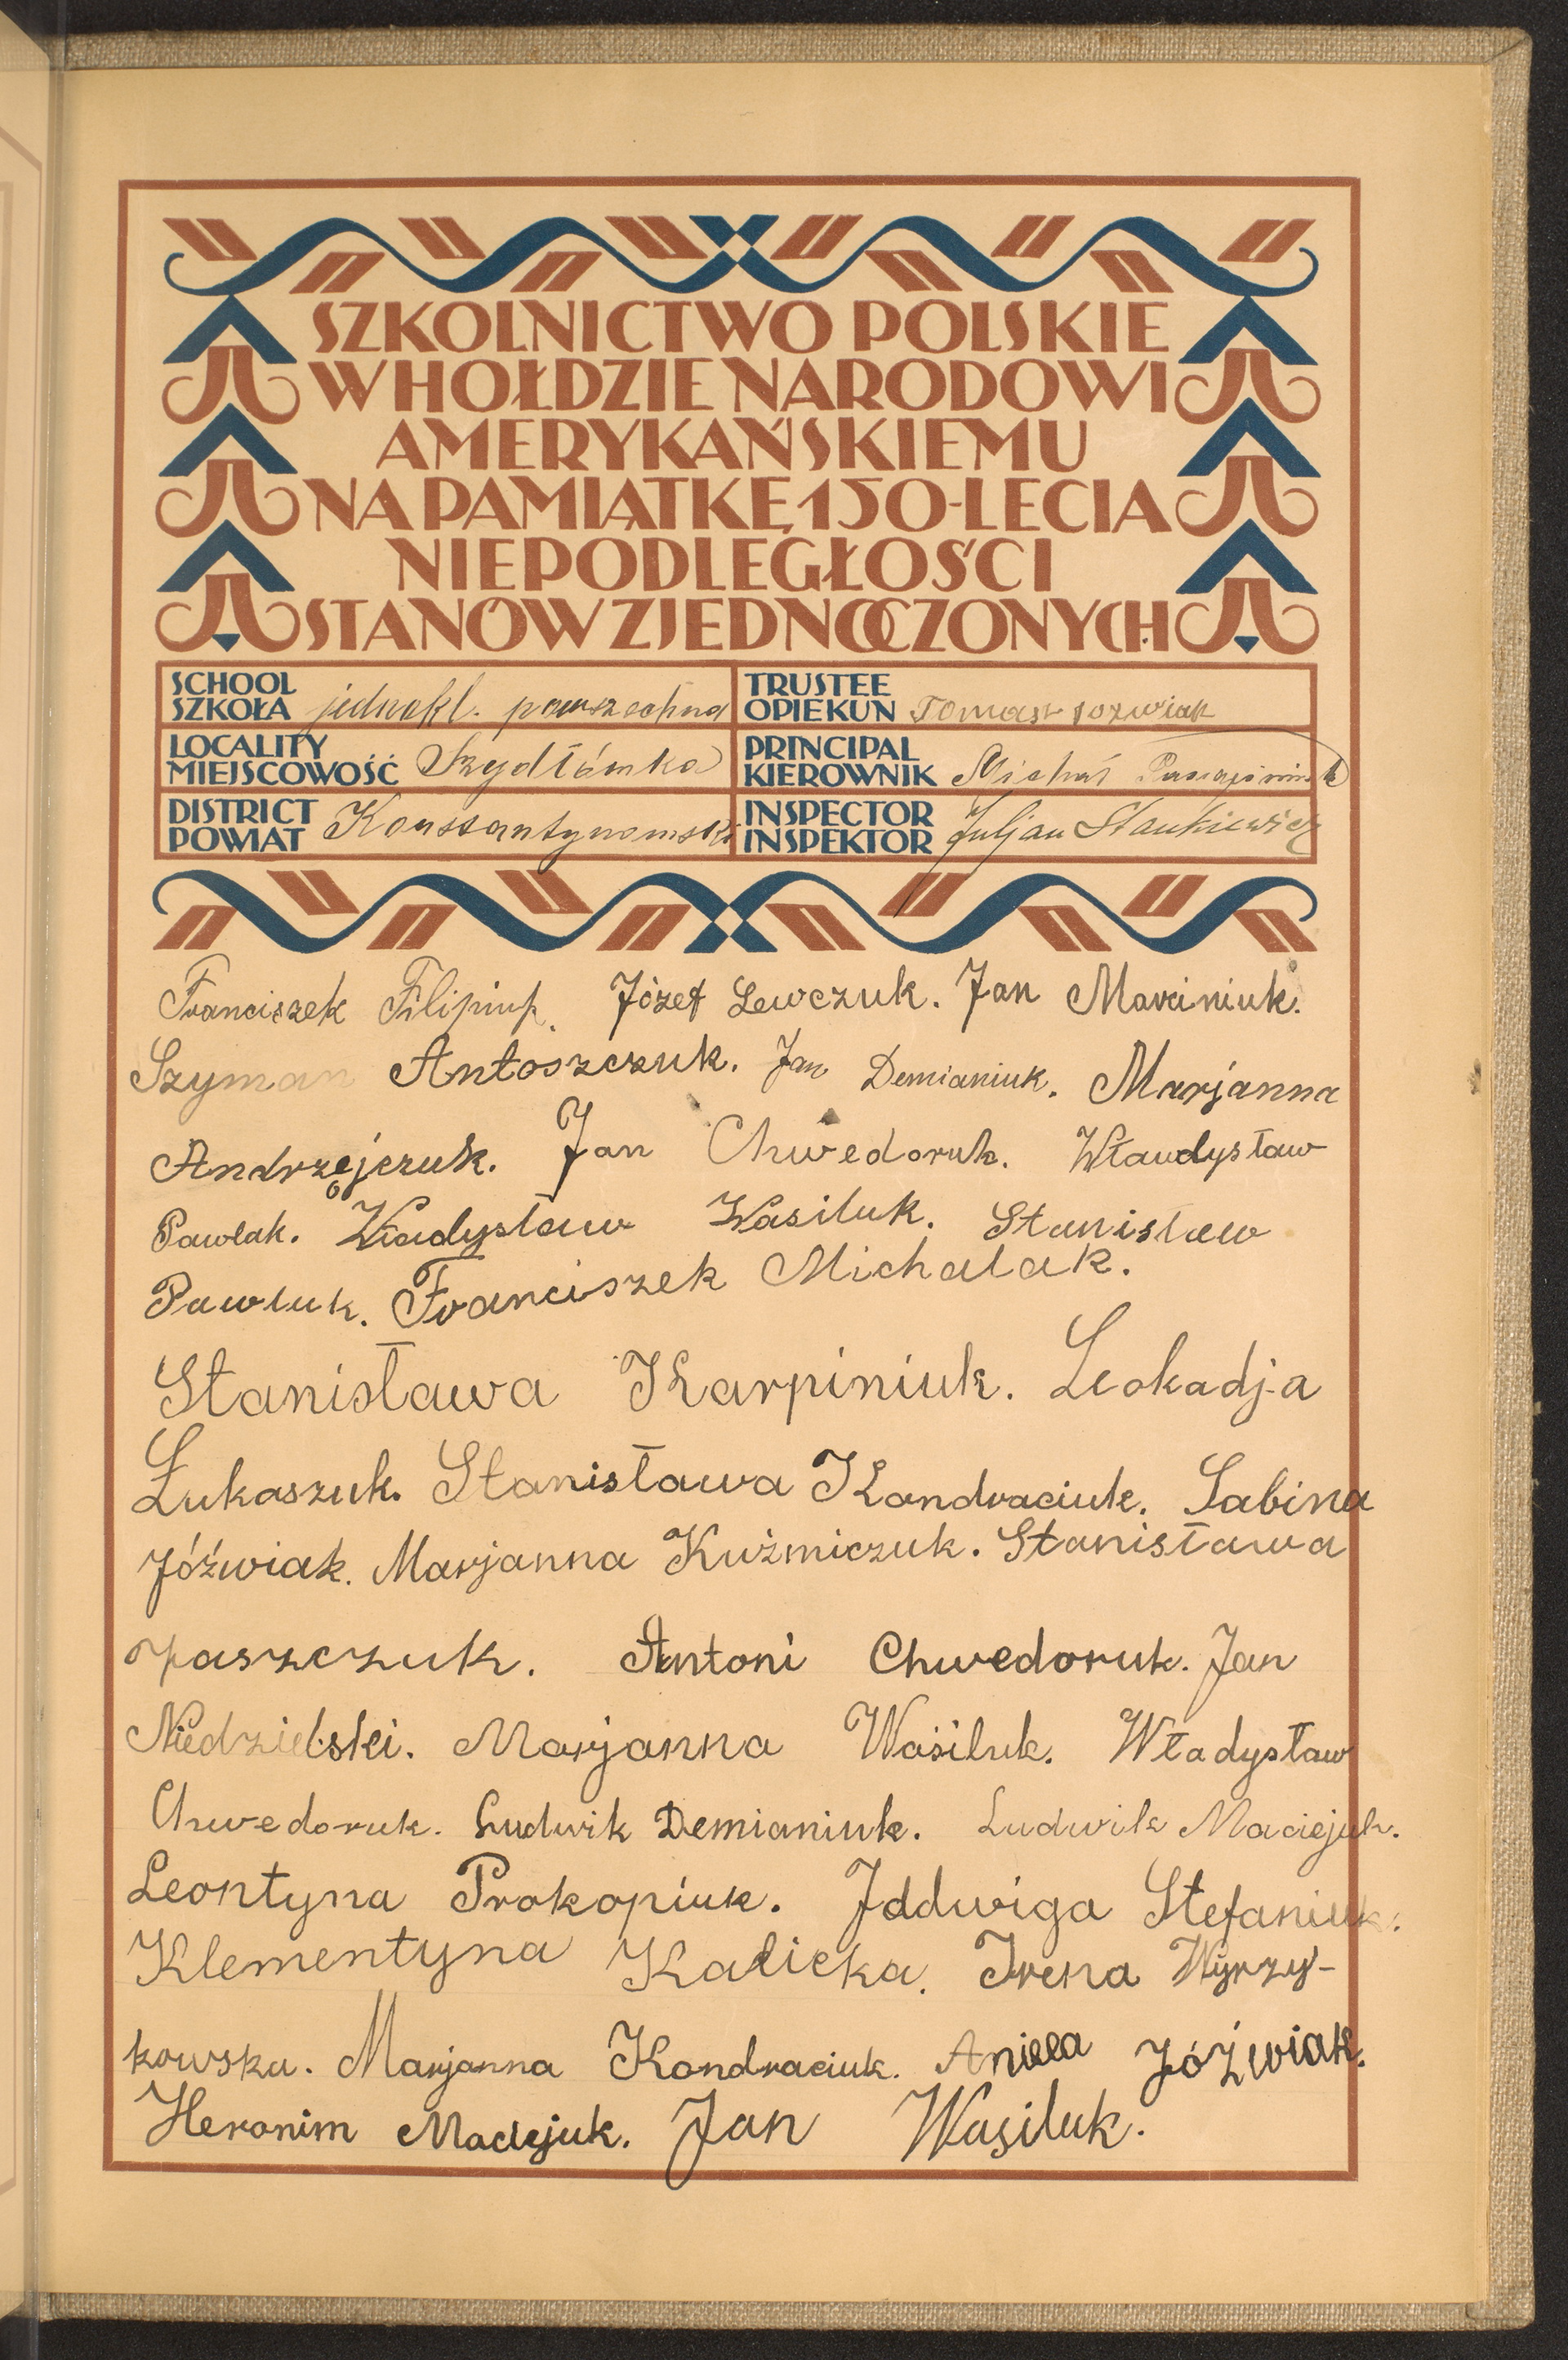 SZKOLNICTWO POLSKIE
W HOŁDZIE NARODOWI
AMERYKAŃSKIEMU
NA PAMIĄTKĘ 150-LECIA
NIEPODLEGŁOŚCI
STANÓW ZJEDNOCZONYCH
SCHOOL
SZKOŁA jednokl. powszechna
TRUSTEE
OPIEKUN Tomasz Jozwiak
LOCALITY
MIEJSCOWOŚĆ Szydłówka
PRINCIPAL
KIEROWNIK Michał
DISTRICT
POWIAT Konstantynowski
INSPECTOR
INSPEKTOR Juljan Stankiewicz
Franciszek Filipiuk. Józef Lewczuk. Jan Marciniuk.
Szyman Antoszczuk. Jan Demianiuk. Marjanna
Andrzejczuk. Jan Chwedoruk. Władysław
Pawlak. Władysław Wasiluk. Stanisław
Pawluk. Franciszek Michalak.
Stanisława Karpiniuk. Leokadja
Łukaszuk. Stanisława Kondraciuk. Sabina
Jóźwiak. Marjanna Kuźmiczuk. Stanisława
Jaszczuk. Antoni Chwedoruk. Jan
Niedzielski. Marjanna Wasiluk. Władysław
Chwedoruk. Ludwik Demianiuk. Ludwik Maciejuk.
Leontyna Prokopiuk. Jddwiga Stefaniuk.
Klementyna Kalicka. Irena Wyrzy-
kowska. Marjanna Kondraciuk. Aniela Jóźwiak.
Heronim Maciejuk. Jan Wasiluk.